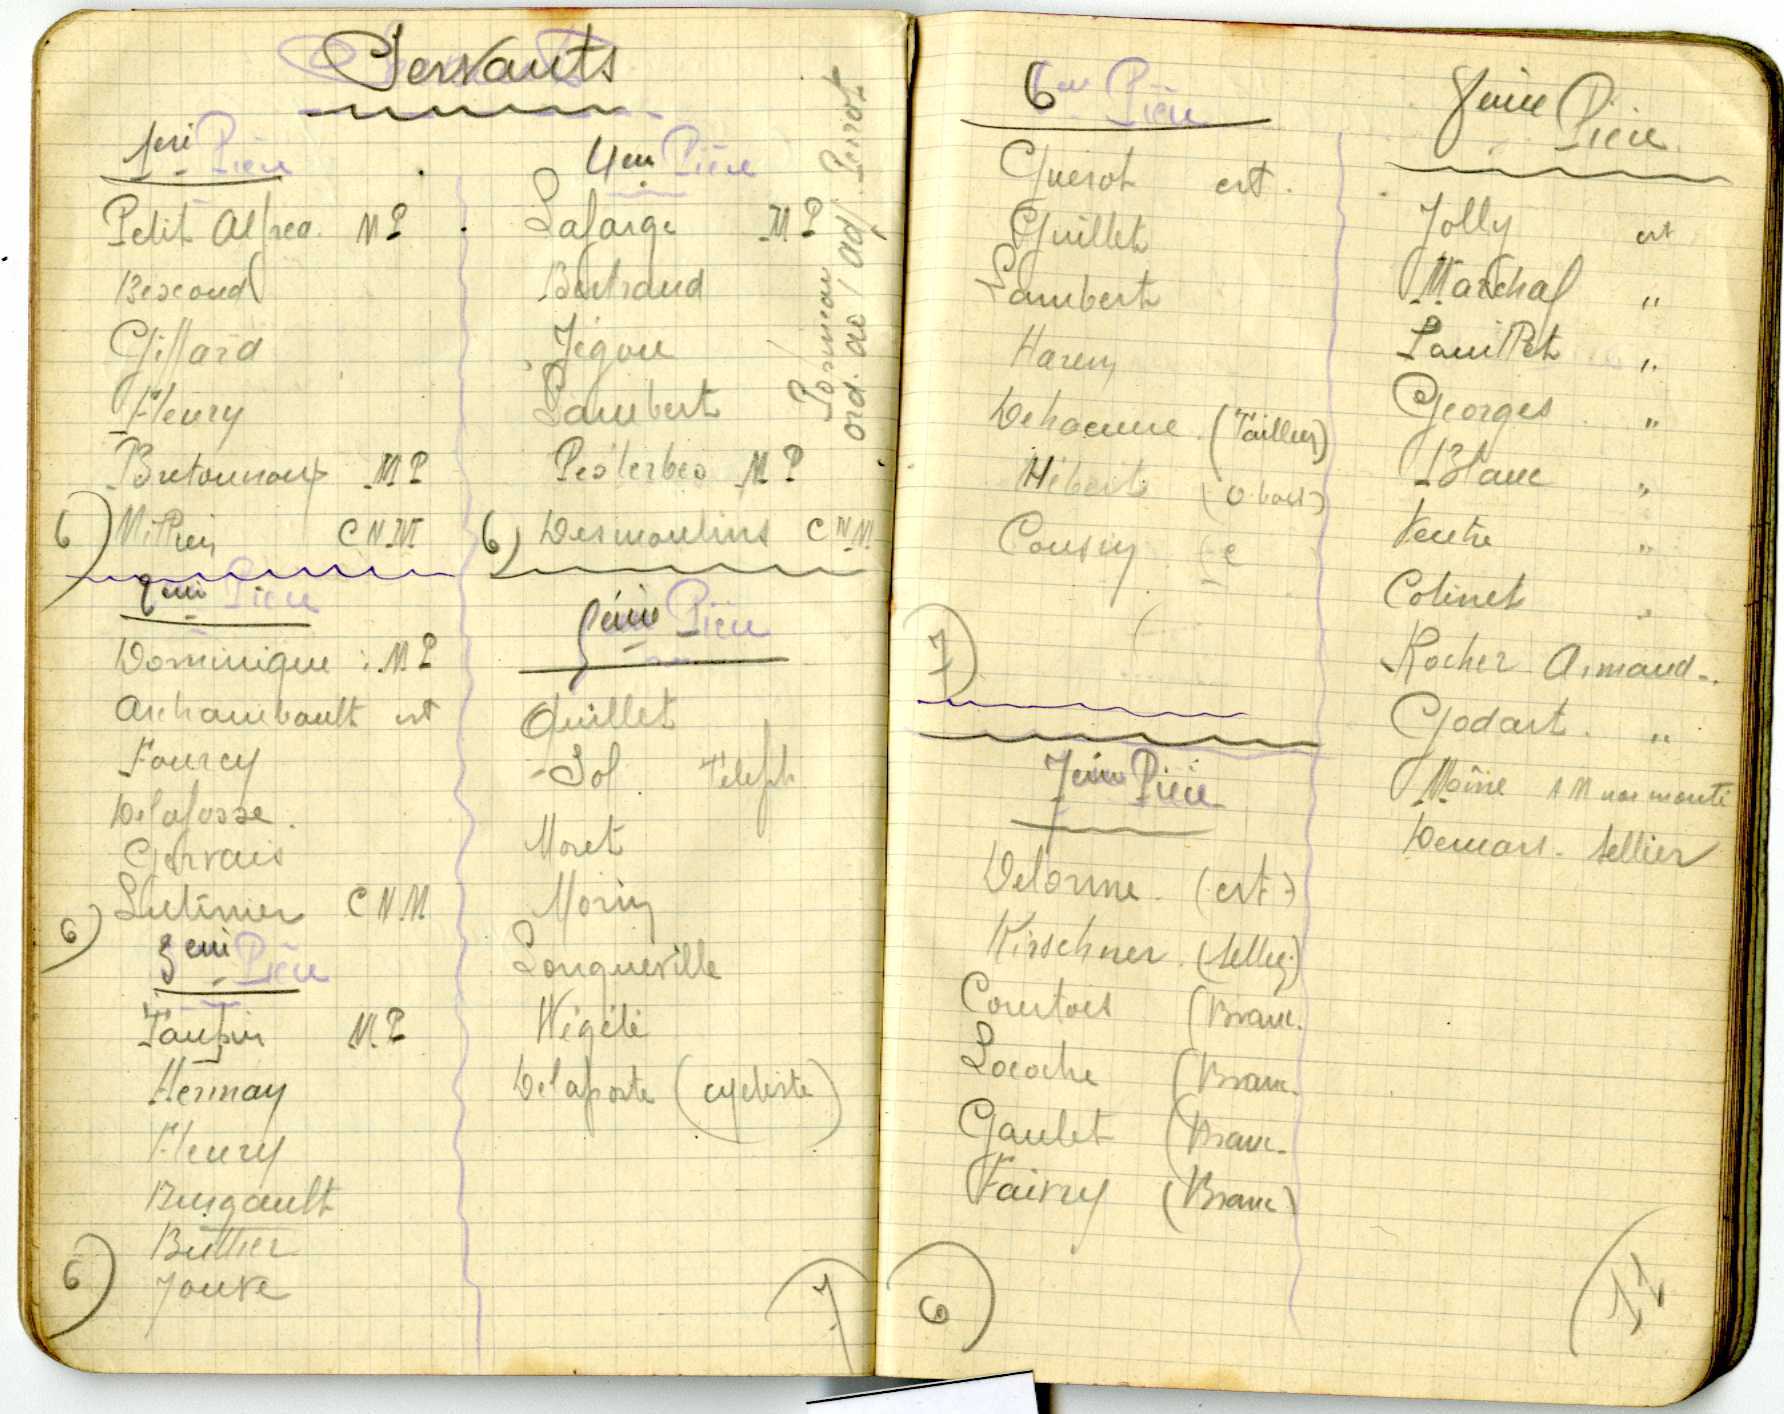 Servants
1ère Pièce
Petit Alfred. M P
Bescond
Gillard
Fleury
Bretonnoux M.P
6) C N.M.
2eme Pièce
Dominique : M.P
Archambault est
Fourcy
Delafosse.
Gervais
C N.M
6)
3eme Pièce
Taupin M.P
Hermay
Fleury
Busgault
Buttier
Jouve
6)
4eme Pièce
Lafarge M P
Bertrand
Jégou
Lambert
Pesterbes M P
6) Desmoulins C N M.
5eme Pièce
Quillet
Sol Teleph
Moret
Morin
Longueville
Hégélé
Delaporte (cycliste)
7
Pormeau
ord. de l'adj. Perrot
6eme Pièce
Guérot est.
Guillet
Lambert
Harem
Dehaenne. (Tailleur)
Hébert
Cousin (e
7)
7eme Pièce
Delorme. (est)
Kirschner. (sellier)
Courtois (Branc.
Lacoche (Branc.
Gaulet (Branc.
Faivry (Branc)
6)
8eme Pièce
Jolly est
Maréchal "
"
Georges "
Blanc "
Ventre "
Colinet "
Rocher Armand "
Godart. "
Moine S M non monté
Demars. sellier
(11